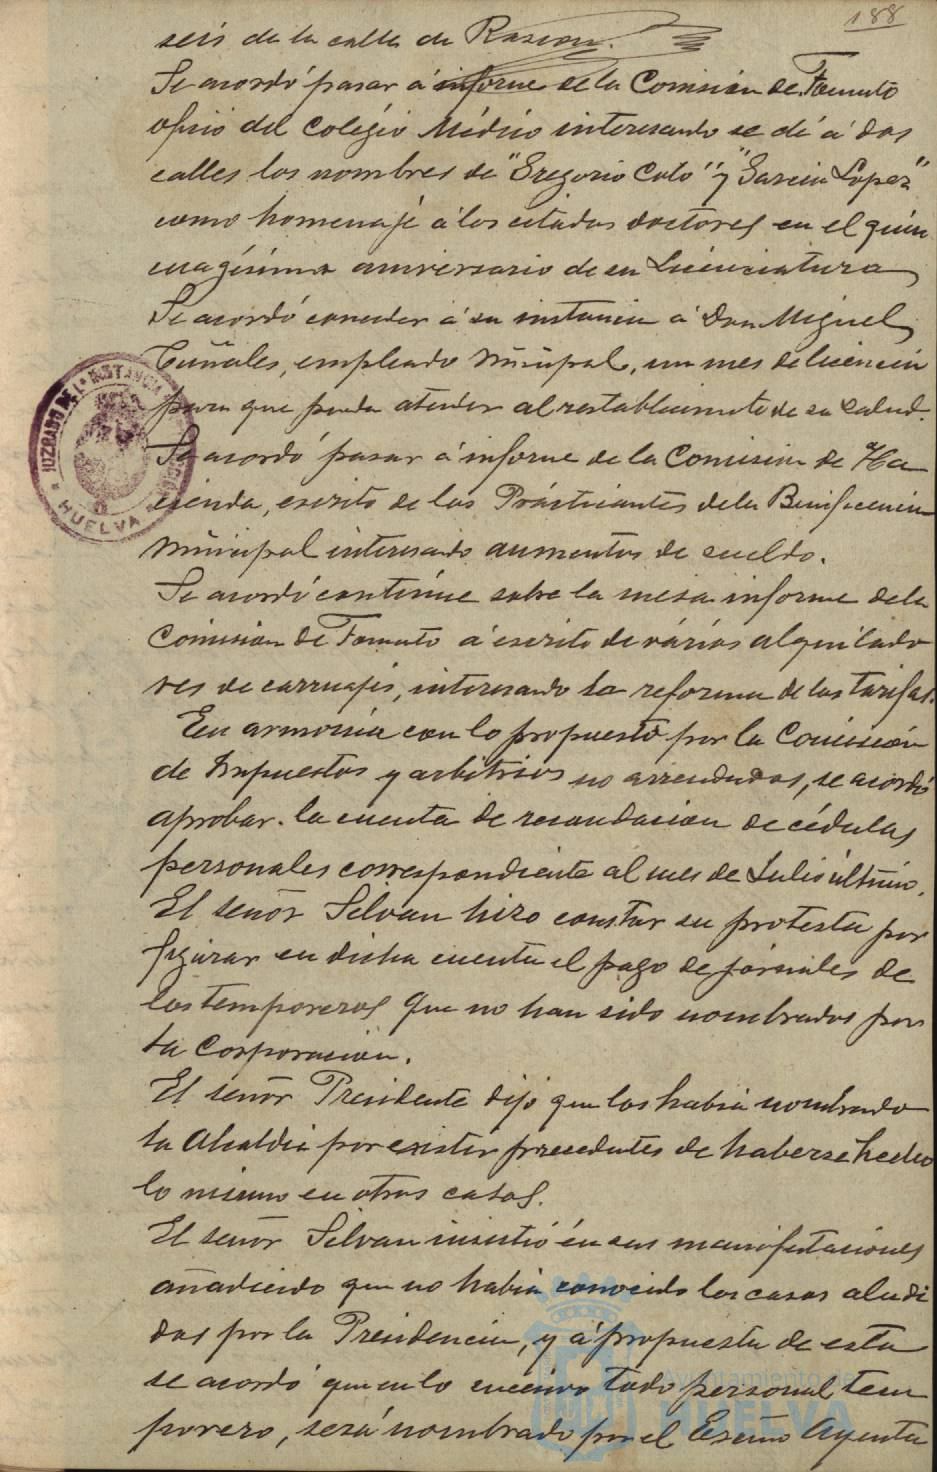 188
seis de la calle de Rascon.
Se acordó pasar á informe de la Comisión de Fomento
ofisio del Colegio Médico interesando se dé á dos
calles los nombres de "Gregorio Coto" y "Garcia Lopez"
como homenaje á los citados doctores en el quin
cuagésimo aniversario de su Licenciatura
Se acordó conceder á su instancia á Don Miguel
empleado municipal, un mes de licencia
para que pueda atender al restablecimiento de su salud.
Se acordó pasar á informe de la Comisión de Ha
cienda, escrito de los Prácticantes de la Beneficencia
Municipal interesando aumentos de sueldo.
Se acordó continúe sobre la mesa informe de la
Comision de Fomento á escrito de vários alquilado
res de carruajes, interesando la reforma de las tarifas.
En armonia con lo propuesto por la Comisión
de Impuestos y arbitrios no arrendados, se acordó
aprobar la cuenta de recaudacion de cédulas
personales correspondiente al mes de Julio último.
El señor Silvan hizo constar su protesta por
figurar en dicha cuenta el pago de jornales de
los temporeros que no han sido nombrados por
la Corporacion.
El señor Presidente dijo que los habia nombrado
la Alcaldia por existir precedentes de haberse hecho
lo mismo en otros casos.
El señor Silvan insistió en sus manifestaciones
añadiendo que no habia conocido los casos aludi
dos por la Presidencia, y á propuesta de esta
se acordó que en lo sucesivo todo personal tem
porero, será nombrado por el Excmo Ayunta
JUZGADO DE 1ª INSTANCIA
HUELVA
Ayuntamiento de
HUELVA